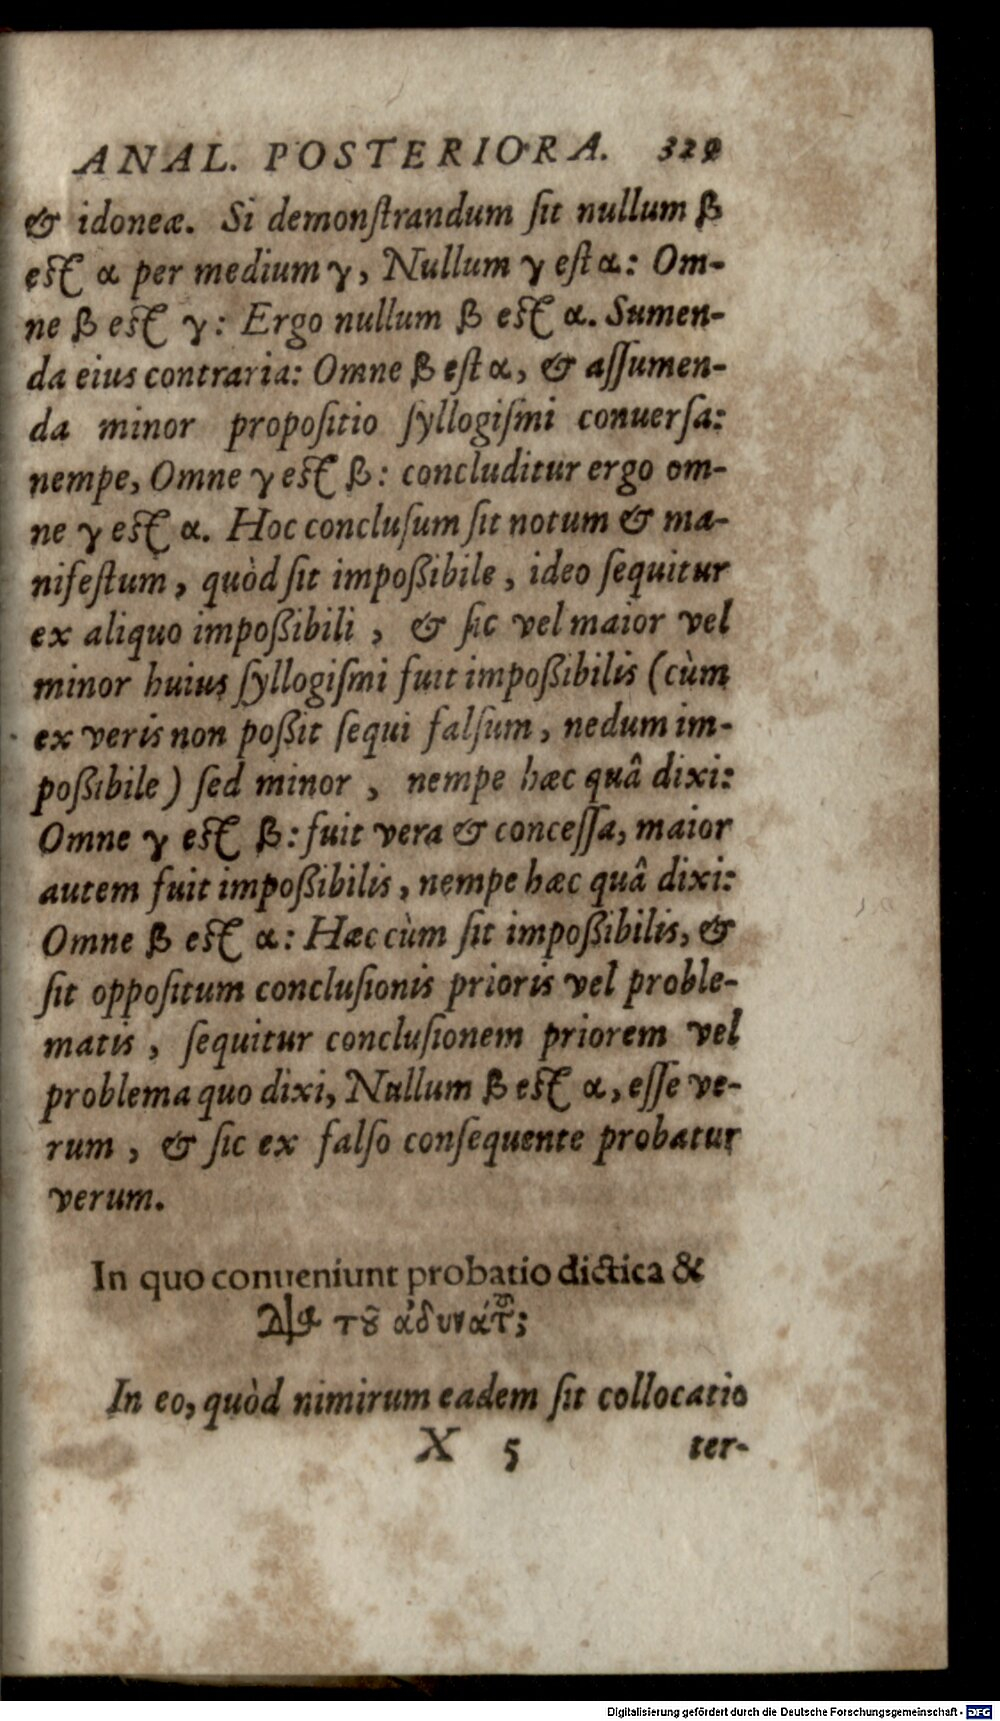 ANAL. POSTERIORA. 329
& idoneæ. Si demonſtrandum ſit nullum β
eſt α per medium γ, Nullum γ eſt α: Om-
ne β eſt γ: Ergo nullum β eſt α. Sumen-
da eius contraria: Omne β eſt α, & aſſumen-
da minor propoſitio ſyllogiſmi conuerſa:
nempe, Omne γ eſt β: concluditur ergo om-
ne γ eſt α. Hoc concluſum ſit notum & ma-
nifeſtum, quòd ſit impoßibile, ideo ſequitur
ex aliquo impoßibili, & ſic vel maior vel
minor huius ſyllogiſmi fuit impoßibilis (cùm
ex veris non poßit ſequi falſum, nedum im-
poßibile) ſed minor, nempe hæc quâ dixi:
Omne γ eſt β: fuit vera & conceſſa, maior
autem fuit impoßibilis, nempe hæc quâ dixi:
Omne β eſt α: Hæc cùm ſit impoßibilis, &
ſit oppoſitum concluſionis prioris vel proble-
matis, ſequitur concluſionem priorem vel
problema quo dixi, Nullum β eſt α, eſſe ve-
rum, & ſic ex falſo conſequente probatur
verum.
In quo conueniunt probatio dictica &
Διὰ τȣ͂ ἀδυνάτȣ;
In eo, quòd nimirum eadem ſit collocatio
X 5 ter-
Digitalisierung gefördert durch die Deutsche Forschungsgemeinschaft - DFG